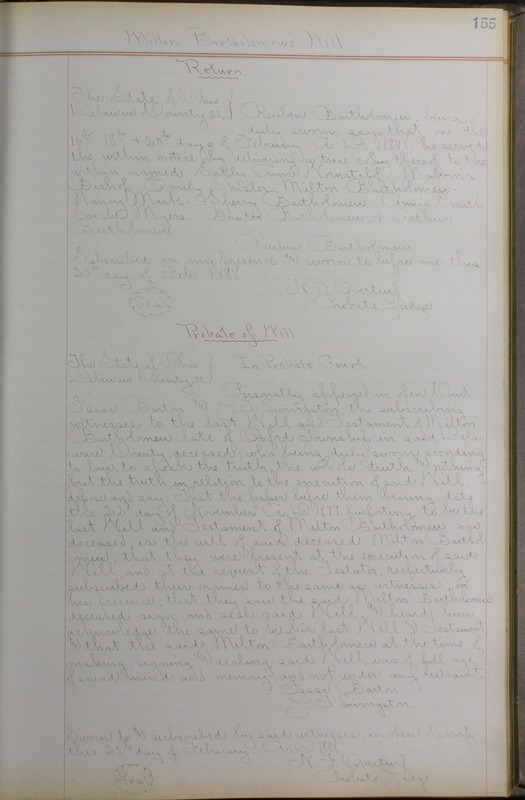 155
Milton Bartholomew's Will
Return
The State of Ohio }
Delaware County ss. } Reuben Bartholomew, being
duly sworn, says that on the
16th 18th & 20th days of February A. D. 1888, he served
the within notice by delivering a true copy thereof to the
within named Sally Ann Malvina
Bishop Milton Bartholomew.
Nancy Bartholomew. Smith
Sarah Myers. Bartholomew & Arthur
Bartholomew
Reuben Bartholomew
Subscribed in my presence and sworn to before me this
25th day of Feb. 1888
N. F. Overturf
Seal Probate Judge
Probate of Will
The State of Ohio }
Delaware County ss } In Probate Court
Personally appeared in open Court
Isaac Barton and L. J. Livingston the subscribing
witnesses to the last Will and Testament of Milton
Bartholomew late of Oxford Township in said Dela-
ware County, deceased; who being duly sworn according
to law, to speak the truth, the whole truth, and nothing
but the truth, in relation to the execution of said Will,
depose and say: That the paper before them bearing date
the 22d day of November A. D. 1877, purporting to be the
last Will and Testament of Milton Bartholomew now
deceased, is the will of said deceased Milton Barthol-
omew, that they were present at the execution of said
Will and at the request of the Testator, respectively
subscribed their names to the same as witnesses, in
his presence; that they saw the said Milton Bartholomew
deceased sign and seal said Will, and heard him
acknowledge the same to be his last Will and Testament,
and that the said Milton Bartholomew at the time of
making, signing and sealing said Will, was of full age,
of sound mind and memory and not under any restraint
Isaac Barton
L. J. Livingston
Sworn to and subscribed by said witnesses, in open Court
this 25th day of February A. D. 1888
N. F. Overturf
Seal Probate Judge.